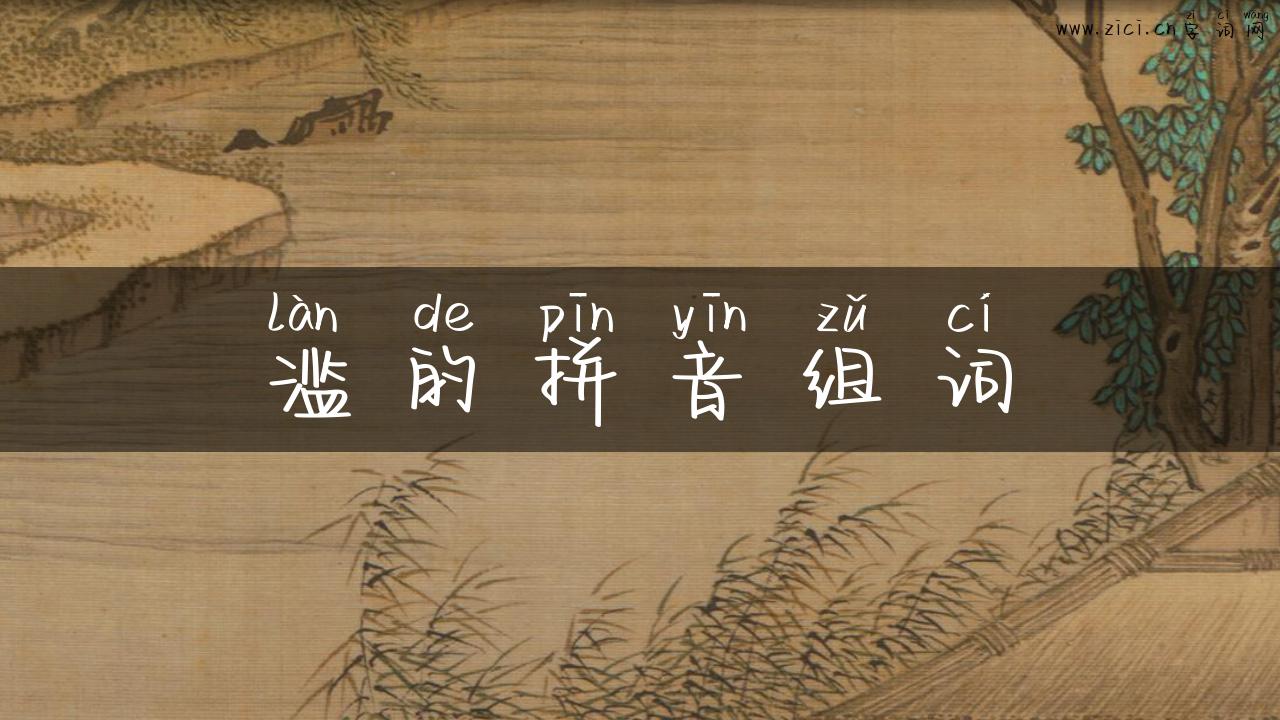 zì cí wǎng
www.zici.cn字词网
làn de pīn yīn zǔ cí
滥的拼音组词